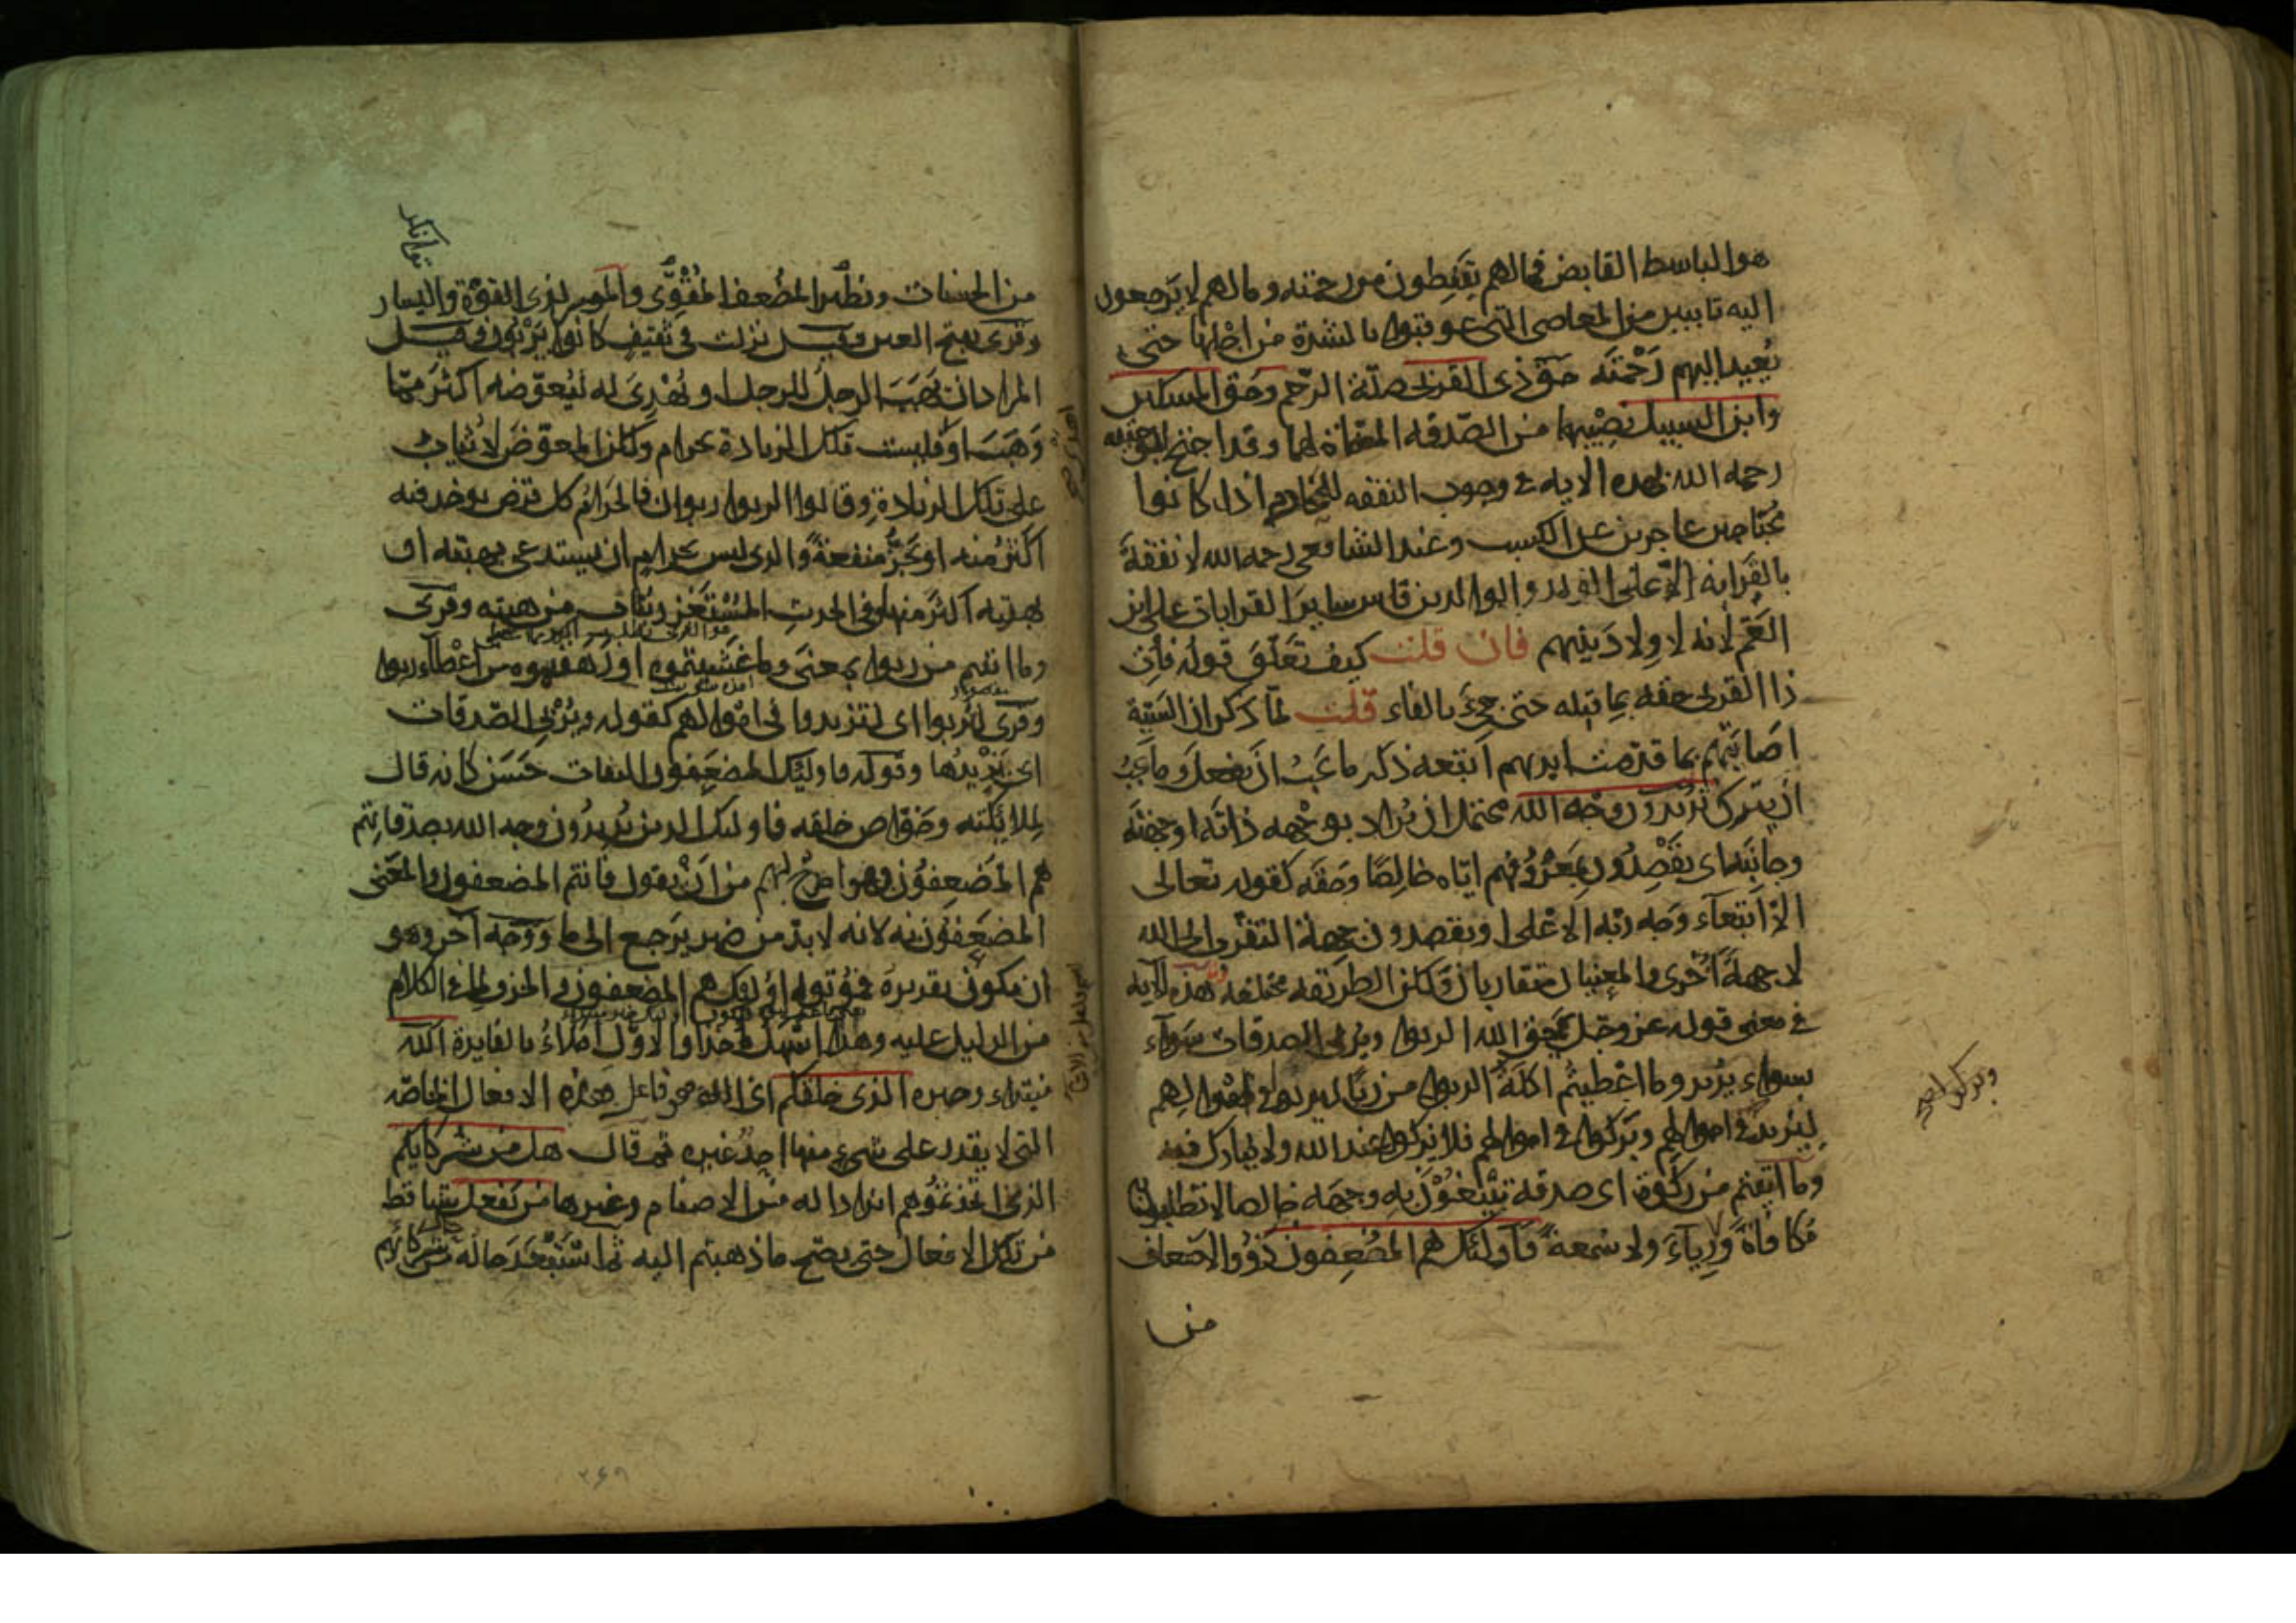 هو الباسط القابض فمالهم يقنطون من رحمته ومالهم لا يرجعون
اليه تايبين من المعاصى التى عوقبوا بالشدة من اجلها حتى
يعيد اليهم رحمته حق ذى القربى صلة الرحم وحق المسكين
وابن السبيل نصيبهما من الصدقه المسماة لهما وقد احتج ابو حنيفه
رحمه الله بهذه الايه فى وجوب النفقه للمحارم اذا كانوا
محتاجين عاجزين عن الكسب وعند الشافعى رحمه الله لا نفقة
بالقرابه الا على الولد والوالدين قاس ساير القرابات على ابن
العم لانه لا ولاد بينهم فان قلت كيف تعلق قوله فات
ذا القربى حقه بما قبله حتى جىء بالفاء قلت لما ذكر ان السيئة
اصابتهم بما قدمت ايديهم اتبعه ذكر ما يجب ان يفعل وما يجب
ان يترك يريدون وجه الله يحتمل ان يراد بوجهه ذاته او جهته
وجانبه اى يقصدون بمعروفهم اياه خالصا وحقه كقوله تعالى
الا ابتغاء وجه ربه الاعلى او يقصدون جهة التقرب الى الله
لا جهة اخرى والمعنيان متقاربان ولكن الطريقه مختلفه هذه الايه
فى معنى قوله عز وجل يمحق الله الربوا ويربى الصدقات سواء
بسواء يريد وما اعطيتم اكلة الربوا من ربا ليربوا فى اموالهم
ليزيد فى اموالهم ويزكوا فى اموالهم فلا يزكوا عند الله ولا يبارك فيه
وما اتيتم من زكوة اى صدقة تبتغون به وجهه خالصا لا تطلبون
مكافاة ورياء ولا سمعة فاولئك هم المضعفون ذوو الاضعاف
من
من الحسنات ونظير المضعف المقوى والموسر لذى القوة واليسار
وقرى بفتح العين وقيل نزلت فى ثقيف كانوا يربون وقيل
المراد ان يهب الرجل للرجل او يهدى له ليعوضه اكثر مما
وهب او فليست تلك الزيادة بحرام ولكن المعوض لا يثاب
على تلك الزيادة وقالوا الربوا ربوان فالحرام كل قرض يوخذ فيه
اكثر منه او يجر منفعة والذى ليس بحرام ان يستدعى بهبته او
بهديته اكثر منها وفى الحديث المستغزر يثاب من هبته وقرى
وما اتيتم من ربوا بمعنى وما غشيتموه او رهقتموه من اعطاء ربوا
وقرى لتربوا اى لتزيدوا فى اموالهم كقوله ويربى الصدقات
اى يزيدها وقوله فاولئك المضعفون التفات حسن كانه قال
لملائكته وخواص خلقه فاولئك الذين يريدون وجه الله بصدقاتهم
هم المضعفون وهو امدح لهم من ان يقول فانتم المضعفون والمعنى
المضعفون به لانه لا بد من ضمير يرجع الى ما ووجه آخر وهو
ان يكون تقديره فمؤتوه اولئك هم المضعفون والحذف لما فى الكلام
من الدليل عليه وهذا اسهل مأخذا والاول املاء بالفايدة الله
مبتداء وخبره الذى خلقكم اى الله هو فاعل هذه الافعال الخاصه
التى لا يقدر على شىء منها احد غيره ثم قال هل من شركايكم
الذين اتخذتموهم اندادا له من الاصنام وغيرها من يفعل شيا قط
من تلك الافعال حتى يصح ما ذهبتم اليه ثم استبعد حاله من شركايهم